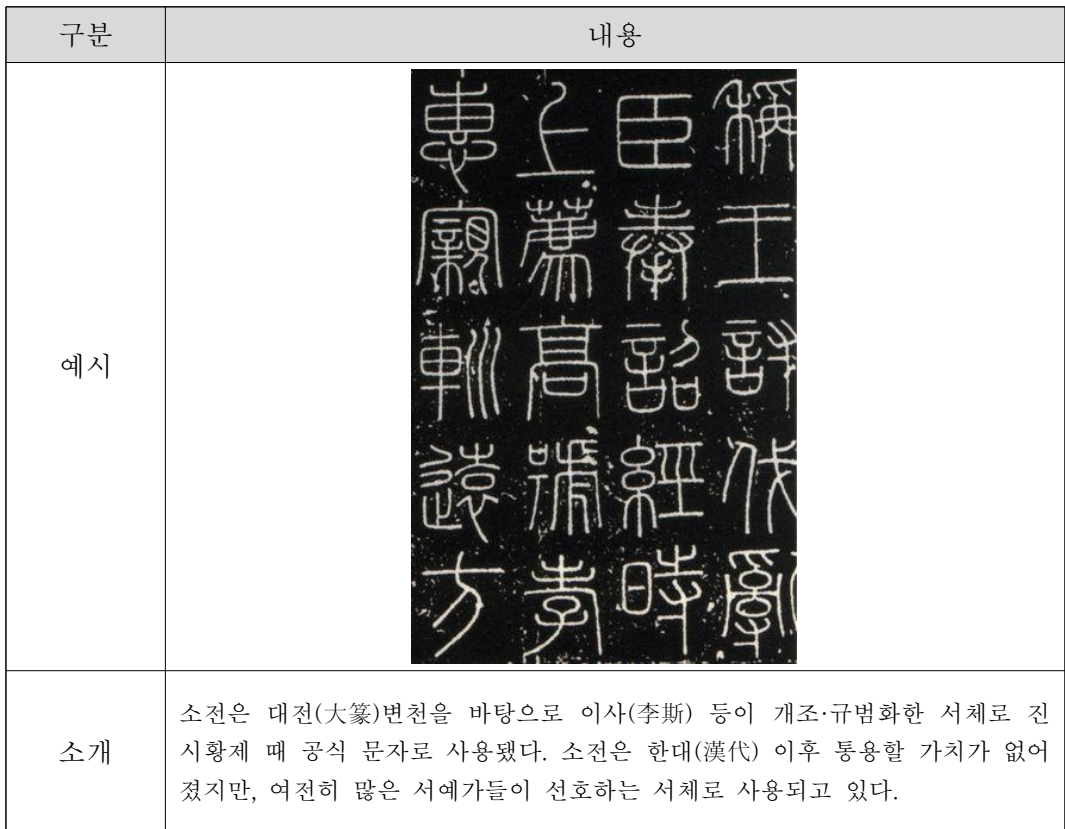 구분
내용
예시
稱王討伐亂
臣奉詔經時
上薦高號孝
惠寴䡅遠方
소개
소전은 대전(大篆)변천을 바탕으로 이사(李斯) 등이 개조·규범화한 서체로 진
시황제 때 공식 문자로 사용됐다. 소전은 한대(漢代) 이후 통용할 가치가 없어
졌지만, 여전히 많은 서예가들이 선호하는 서체로 사용되고 있다.